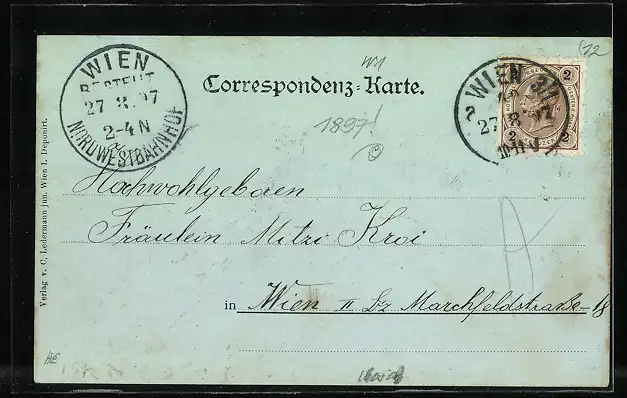 WIEN
BESTELLT
27. 8. 97
2-4 N
NORDWESTBAHNHOF
Correspondenz-Karte.
WIEN
27 8 97
2
2
1897!
12
Hochwohlgeboren
Fräulein Mitzi Kroi
in Wien II Bz Marchfeldstraße 18
Verlag v. C. Ledermann jun. Wien I. Deponirt.